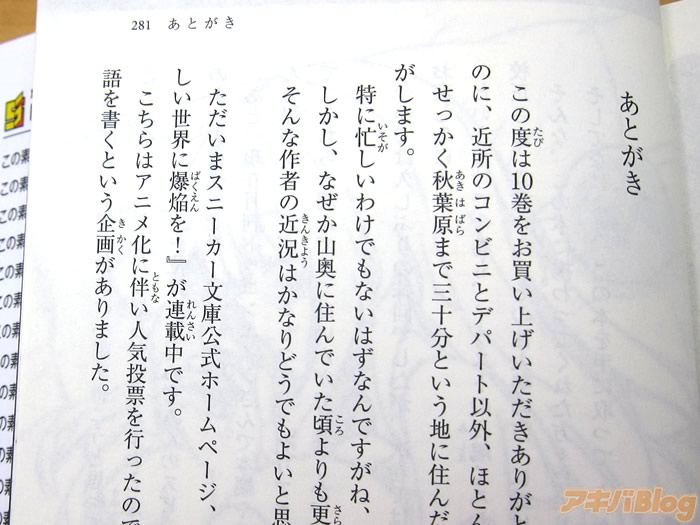 281 あとがき
あとがき
この度は10巻をお買い上げいただきありがと
のに、近所のコンビニとデパート以外、ほとん
せっかく秋葉原まで三十分という地に住んだ
がします。
特に忙しいわけでもないはずなんですがね、
しかし、なぜか山奥に住んでいた頃よりも更
そんな作者の近況はかなりどうでもよいと思
ただいまスニーカー文庫公式ホームページ、
しい世界に爆焔を！』が連載中です。
こちらはアニメ化に伴い人気投票を行ったので
語を書くという企画がありました。
この素
この素
この素
この素
この素
この素
この素
この素
この素
この素
この素
アキバBlog